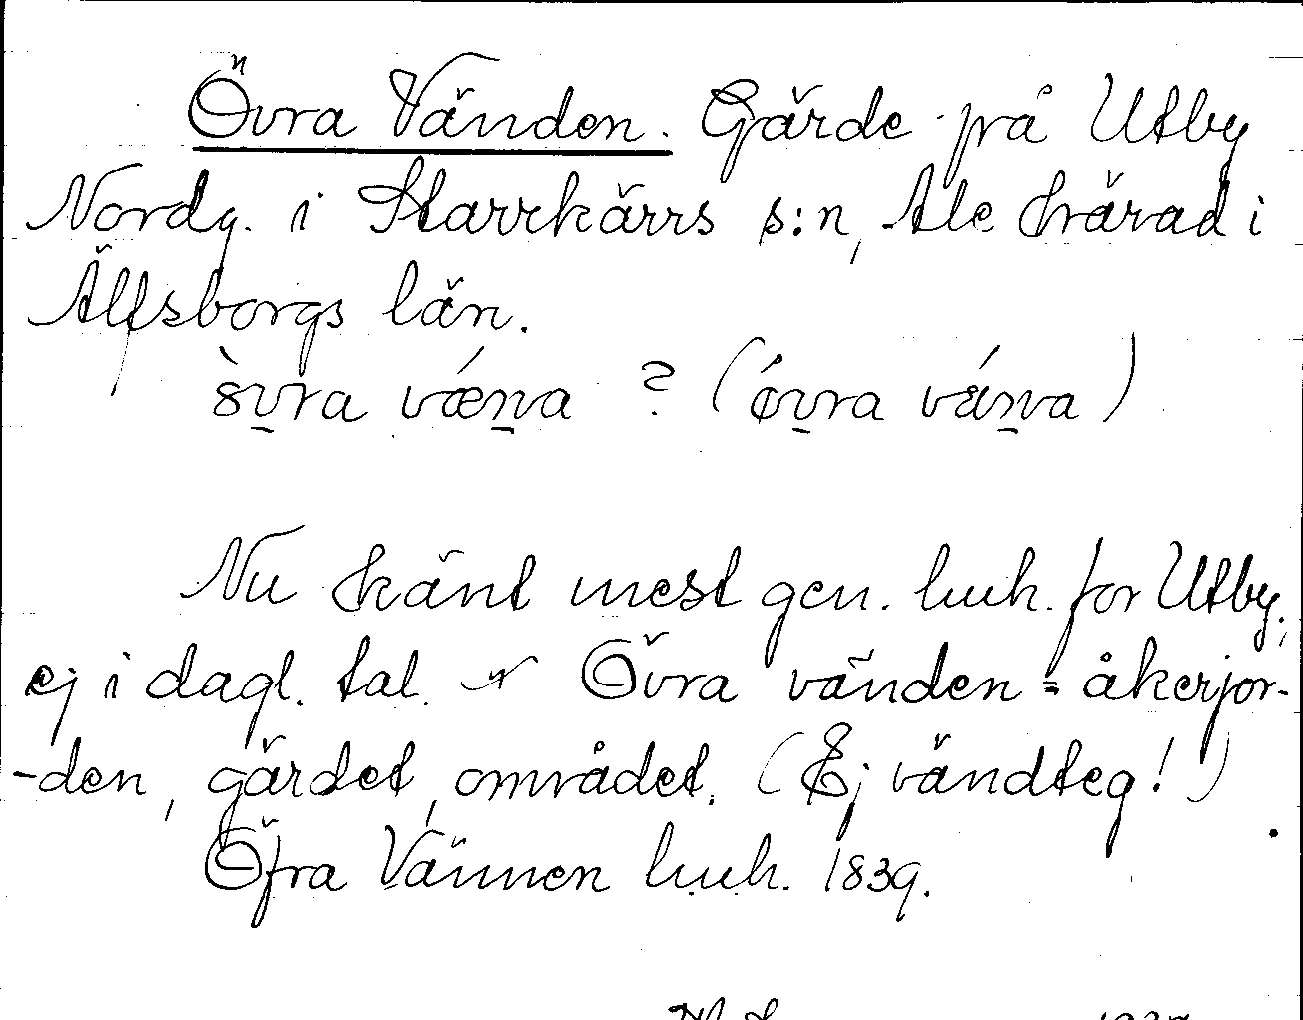 Övra Vänden. Gärde på Utby
Nordg. i Starrkärrs s:n, Ale härad i
Älfsborgs län.
? (
Nu känt mest gen. luh. for Utby,
ej i dagl. tal. Övra vänden = åkerjor-
-den, gärdet, området. (Ej vändteg!)
Öfra Vännen luh. 1839.